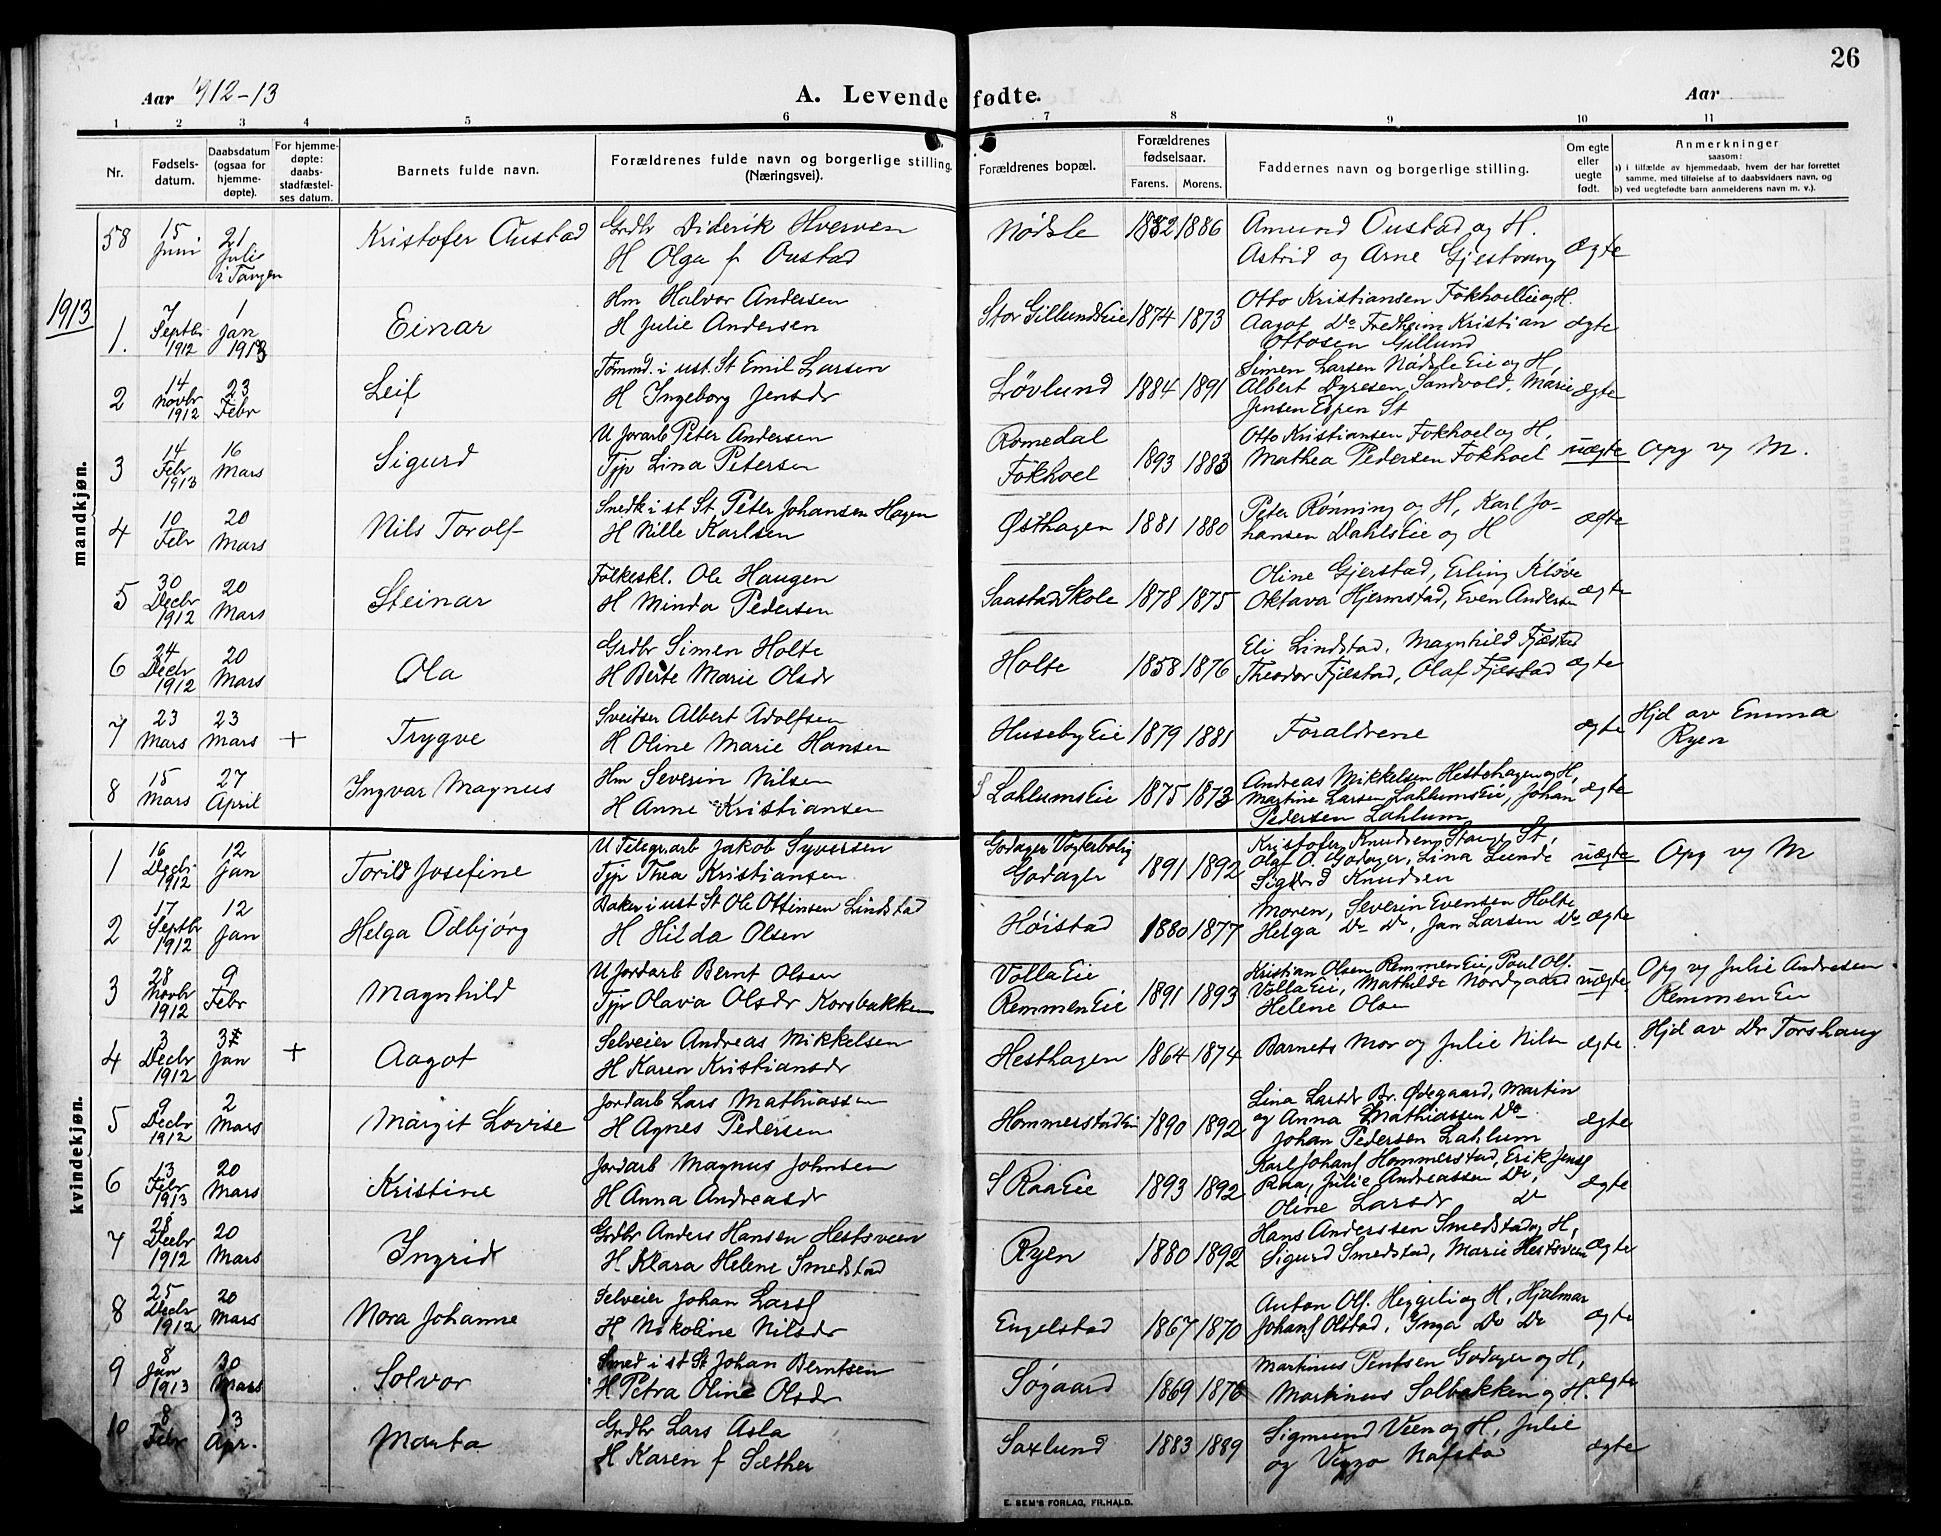 26
Aar 1912-13
A. Levende fødte.
Aar
1 2 3 4 5 6 7 8 9 10 11
Nr.
Fødsels-
datum.
Daabsdatum
(ogsaa for
hjemme-
døpte).
For hjemme-
døpte:
daabs-
stadfæstel-
ses datum.
Barnets fulde navn.
Forældrenes fulde navn og borgerlige stilling.
(Næringsvei).
Forældrenes bopæl.
Forældrenes
fødselsaar.
Farens. Morens.
Faddernes navn og borgerlige stilling.
Om egte
eller
uegte
født.
Anmerkninger
saasom:
a) i tilfælde av hjemmedaab, hvem der har forrettet
samme, med tilføielse af to daabsvidners navn, og
b) ved uegtefødte barn anmelderens navn m. v.).
58 15 Juni 21 Julie i Tangen Kristofer Oustad Grdbr Diderik Hverven
H Olga f Oustad Nødsle 1882 1886 Amund Oustad og H.
Astrid og Arne Gjestvang ægte
1913
mandkjøn.
1. 7 Septbr 1912 1 Jan 1913 Einar Hm Halvor Andersen
H Julie Andersen Stor Gillunds Eie 1874 1873 Otto Kristiansen Fokhol Eie og H.
Aagot Do Fredheim Kristian
Ottosen Gillund ægte
2 14 Novbr 1912 23 Febr Leif Tømmd. i ust. St Emil Larsen
H Ingeborg Jensdr Løvlund 1884 1891 Simen Larsen Nødsle Eie og H,
Albert Dyresen Sandvold, Marie
Jensen Espen St ægte
3 14 Febr 1913 16 Mars Sigurd U Jorarb Peter Andersen
Tjp Lina Petersen Romedal
Fokhoel 1893 1883 Otto Kristiansen Fokhoel og H,
Mathea Pedersen Fokhoel uægte Opg v M.
4 10 Febr 20 Mars Nils Torolf Snedk i st St Peter Johansen Hagen
H Nille Karlsen Østhagen 1881 1880 Peter Rønning og H, Karl Jo-
hansen Dahls Eie og H ægte
5 30 Decbr 1912 20 Mars Steinar Folkeskl. Ole Haugen
H Minda Pedersen Saastad Skole 1878 1875 Oline Gjerstad, Erling Kløve
Oktava Hjermstad, Even Andersen ægte
6 24 Decbr 1912 20 Mars Ola Grdbr Simen Holte
H Berte Marie Olsdr Holte 1858 1876 Eli Lindstad, Magnhild Fjæstad
Theodor Fjæstad, Olaf Fjæstad ægte
7 23 Mars 23 Mars + Trygve Sveitser Albert Adolfsen
H Oline Marie Hansen Huseby Eie 1879 1881 Foraldrene ægte Hjd av Emma
Ryen
8 15 Mars 27 April Ingvar Magnus Hm Severin Nilsen
H Anne Kristiansen S Lahlums Eie 1875 1873 Andreas Mikkelsen Hestehagen og H,
Martine Larsen Lahlums Eie, Johan
Pedersen Lahlum ægte
kvindekjøn.
1 16 Decbr 1912 12 Jan Torild Josefine U Telegr.arb Jakob Syversen
Tjp Thea Kristiansen Godager Vogterbolig
Godager 1891 1892 Kristofer Knudsen, Stange St,
Olaf O. Godager, Lina Lunde
Sigurd Knudsen uægte Opg v M
2 17 Septbr 1912 12 Jan Helga Odbjørg Baker i ust St Ole Ottinsen Lindstad
H Hilda Olsen Høistad 1880 1877 Moren, Severin Evensen Holte
Helga Do Do, Jan Larsen Do ægte
3 28 Novbr 1912 9 Febr Magnhild U Jordarb Bernt Olsen
Tjp Olava Olsdr Korsbakken Volla Eie
Remmen Eie 1891 1893 Kristian Olsen Remmen Eie, Paul Ols.
Volla Eie, Mathilde Nordgaard
Helene Olsen uægte Opg v Julie Andresen
Remmen Eie
4 3 Decbr 1912 Jan + Aagot Selveier Andreas Mikkelsen
H Karen Kristiansdr Hesthagen 1864 1874 Barnets Mor og Julie Nilsn ægte Hjd av Dr Torshaug
5 9 Decbr 1912 2 Mars Margit Lovise Jordarb Lars Mathiassen
H Agnes Pedersen Hommerstad Eie 1890 1892 Lina Larsdr Br. Ødegaard, Martin
og Anna Mathiassen Do
Johan Pedersen Lahlum ægte
6 13 Febr 1913 20 Mars Kristine Jordarb Magnus Johnsen
H Anna Andreasdr S Raa Eie 1893 1892 Karl Johans Hommerstad, Erik Jens
Raa, Julie Andreassen Do,
Oline Larsdr Do ægte
7 28 Decbr 1912 20 Mars Ingrid Grdbr Anders Hansen Hestsveen
H Klara Helene Smedstad Ryen 1880 1892 Hans Anderssen Smedstad og H,
Sigurd Smedstad, Marie Hestsveen ægte
8 25 Decbr 1912 20 Mars Nora Johanne Selveier Johan Lars
H Nikoline Nilsdr Engelstad 1867 1870 Anton Ols. Heggeli og H, Hjalmar
Johans Olstad, Inga Do Do ægte
9 8 Jan 1913 30 Mars Solvor Smed i st St Johan Berntsen
H Petra Oline Olsdr Søgaard 1869 1876 Martinus Pentsen Godager og H,
Martinus Solbakken og H. ægte
10 8 Febr 13 Apr. Marta Grdbr Lars Asla
H Karen f Sæther Saxlund 1883 1889 Sigmund Veen og H, Julie
og Viggo Nafstad ægte
E. SEM'S FORLAG, FR.HALD.